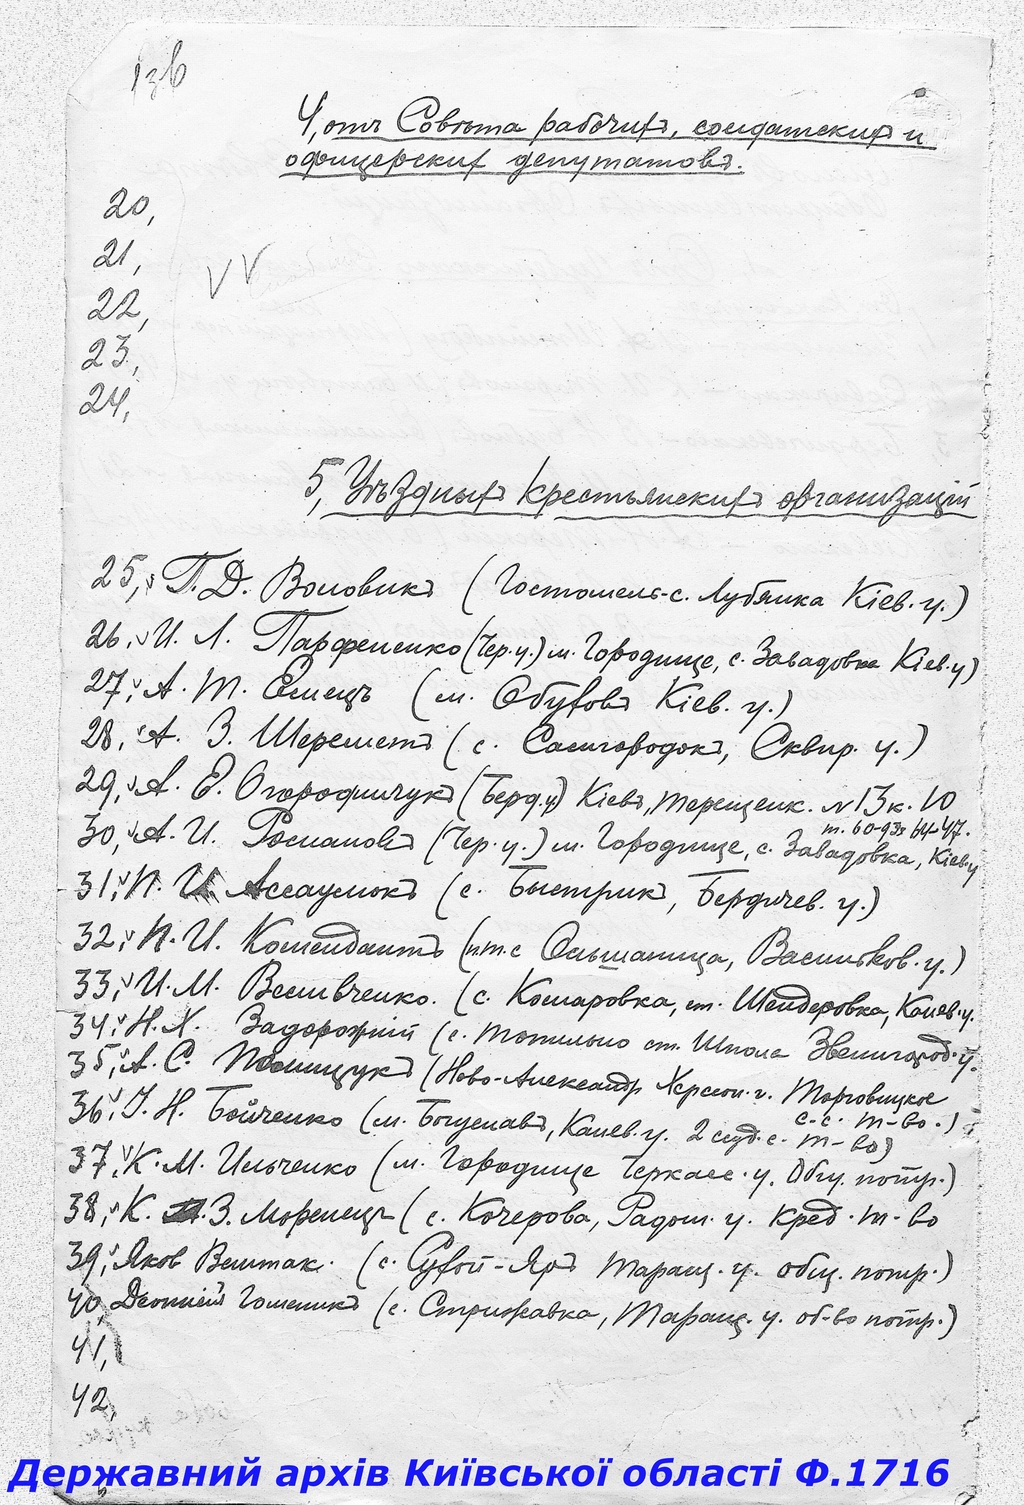 13б
4, отъ Совѣта рабочихъ, солдатскихъ и
офицерских депутатовъ.
20,
21,
22,
23,
24,
5, Уѣздныхъ крестьянскихъ организацій
25, П. Д. Воловикъ (Гостомель-с. Лубянка Кіев. у.)
26, И. Л. Парфененко (Чер. у.) м. Городище, с. Завадовка Кіев. у)
27, А. Т. Емецъ (м. Обуховъ Кіев. у.)
28, А. З. Шереметъ (с. Самгородокъ, Сквир. у.)
29, А. Е. Огородничукъ (Берд. у) Кіевъ, Терещенк. №13 к. 10
т. 60-93 64-47.
30, А. И. Романовъ (Чер. у.) м. Городище, с. Завадовка, Кіев. у
31, И. Ассаулюкъ (с. Быстрикъ, Бердичев. у.)
32, И. И. Комендантъ (п.т.с Ольшаница, Васильков. у.)
33, И. М. Веливченко. (с. Комаровка, ст. Шендеровка, Канев. у.
34, Н. Х. Задорожній (с. Топильно ст. Шпола Звенигород. у.
35, А. С. Полищукъ (Ново-Александр Херсон. г. Торговицкое
с.-с. т-во.)
36, І. Н. Бойченко (м. Богуславъ, Канев. у. 2 ссуд. с. т-во)
37, К. М. Ильченко (м. Городище Черкасс. у. Общ. потр.)
38, К. З. Моренецъ (с. Кочерова, Радом. у. Кред. т-во
39, Яков Вештак. (с. Сухой-Яръ Таращ. у. общ. потр.)
40, Гоменикъ (с. Стрижавка, Таращ. у. об-во потр.)
41,
42,
Державний архів Київської області Ф.1716